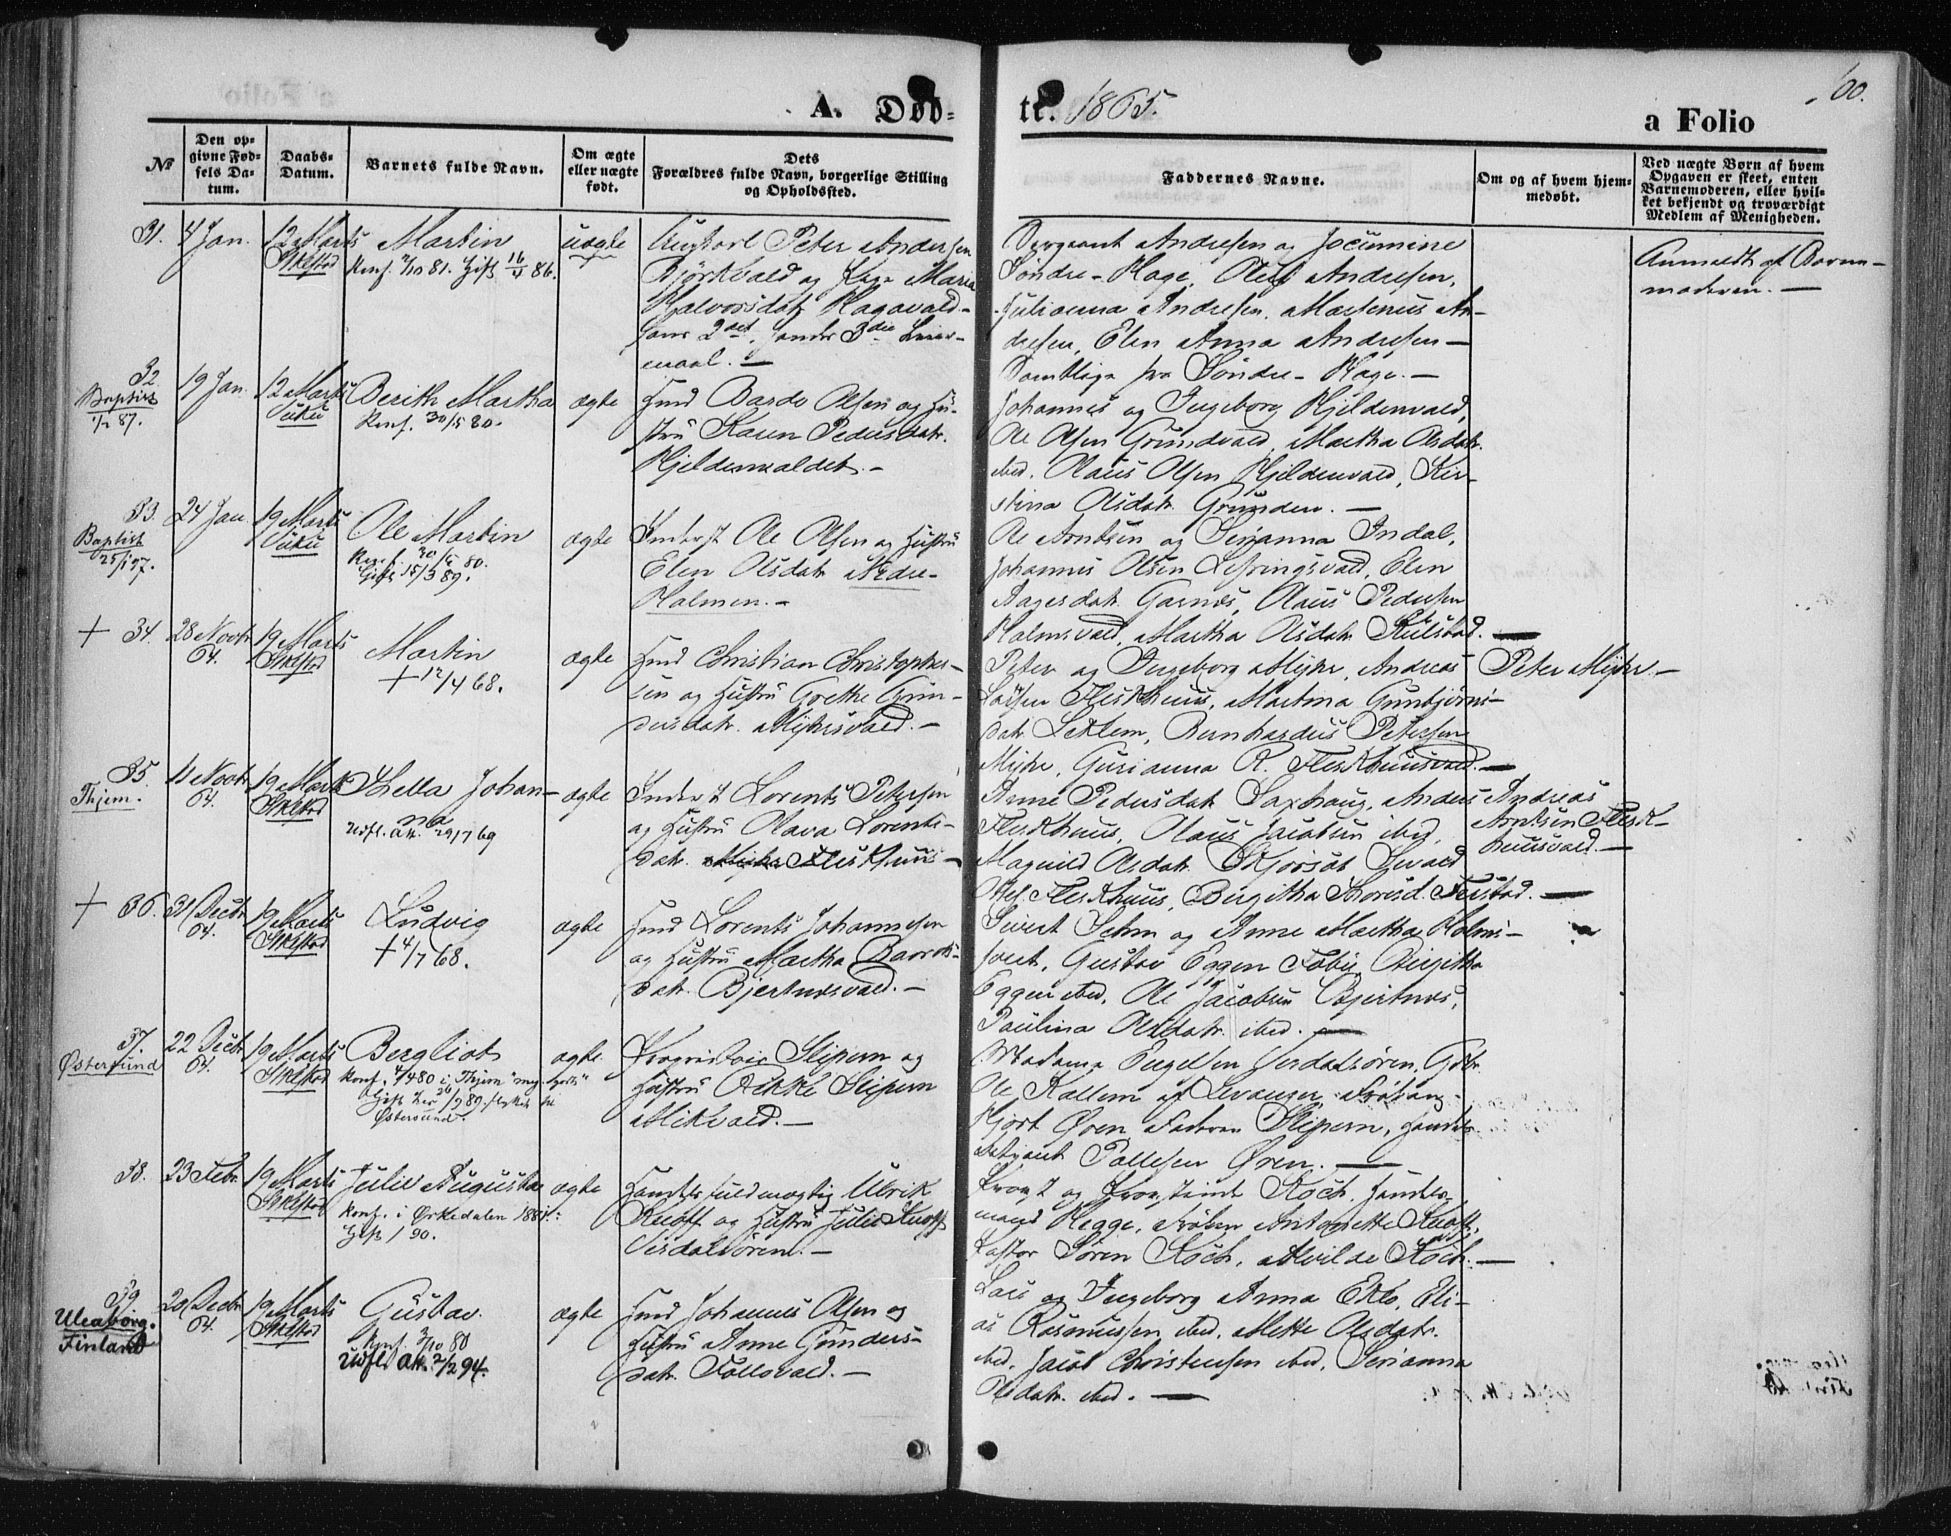 A. Døb=
te. 1865.
a Folio
100.
№
Den op-
givne Fød-
sels Da-
tum.
Daabs-
Datum.
Barnets fulde Navn.
Om ægte
eller uægte
født.
Dets
Forældres fulde Navn, borgerlige Stilling
og Opholdssted.
Faddernes Navne.
Om og af hvem hjem-
medøbt.
Ved uægte Børn af hvem
Opgaven er skeet, enten
Barnemoderen, eller hvil-
ket bekjendt og troværdigt
Medlem af Menigheden.
31. 4 Jan. 12 Marts
Skestad
Martin
Konf. 2/10 81. Gift 16/4 86.
uægte
Ungkarl Peter Andersen
Björkvald og Pige Maria
Halvorsdatr Hagavald-
hans 2det, hendes 3die Leier-
maal. —
Sergeant Andresen og Jocumine
Söndre-Hage, Oluf Andresen,
Julianna Andresen, Martenius An-
dresen, Elen Anna Andresen —
Samtlige fra Söndre-Hage. —
Anmeldt af Barne-
moderen. —
32.
Baptist
1/2 87.
19 Jan. 12 Marts
Vuku
Berith Martha
Konf. 30/5 80.
ægte
Hmd Bardo Olsen og Hu-
stru Karen Pedersdatr.
Hjeldenvaldet. —
Johannes og Ingeborg Hjeldenvald,
Ole Olsen Grundvald, Martha Olsdatr.
ibid. Olaus Olsen Hjeldenvald, Kir-
stina Olsdatr. Grunden. —
33.
Baptist
25/1 97.
24 Jan 19 Marts
Vuku
Ole Martin
Konf. 30/5 80.
Gift 15/3 89.
ægte
Inderst Ole Olsen og Hustru
Elen Olsdatr Nedre-
Holmen. —
Ole Arntsen og Serianna Indal,
Johannes Olsen Lefringsvald, Elen
Aagesdatr. Garnæs, Olaus Pedersen
Holmsvald, Martha Olsdatr. Kulstad. —
+ 34. 28 Novbr
64.
19 Marts
Skestad
Martin
+ 12/4 68.
ægte
Hmd Christian Christopher-
sen og Hustru Grethe Gun-
dersdatr. Myhrsvald. —
Peter og Ingeborg Myhr, Andreas
Larsen Fleskhuus, Martina Gunbjørns-
datr Leklem, Bernhardus Petersen
Myhr, Gurianna R. Fleskhuusvald. —
Peter Myhr. —
35.
Thjem.
11 Novbr
64.
19 Marts
Skestad
Thella Johan-
na
Udfl. Att. 29/7 69
ægte
Inderst Lorents Petersen
og Hustru Olava Lorents-
datr. Fleskhuus —
Anne Pedersdatr Saxhaug, Anders
Fleskhuus, Olaus Jacobsen ibid,
Magnild Olsdatr. Skjørsås Sivald
Fleskhuus, Birgitha Thoresd. Trustad. —
Andreas
Arntsen Flesk-
huusvald. —
+ 36. 31 Decbr
64.
19 Marts
Skestad
Ludvig
+ 4/7 68.
ægte
Hmd Lorents Johannesen
og Hustru Martha Baards-
datr. Bjertnæsvald. —
Sivert Sehm og Anne Martha Holms-
Gustav Eggen Birgitha
Eggen ibid, Ole Jacobsen Bjertnæs,
Paulina Olsdatr. ibid. —
37.
Østersund
22 Decbr
64.
19 Marts
Skestad
Bergliot
Konf. 4/4 80 i Thjem "meg. godt"
Gift her 24/9 89. flyttet til
Østersund.
ægte
Slipern og
Hustru Rikke Slipern
Mikvald. —
Madame Engelsen Verdalsören, Gdbr.
Ole Kallem af Levanger, Fröken
Hjort Øren, Faderen Slipern, Handels-
betjent Pallesen Øren. —
38. 23 Febr. 19 Marts
Skestad
Julie Augusta
Konf. i Ørkedalen 1881.
Gift / 90.
ægte
Handelsfuldmægtig Ulrik
Knoff og Hustru Julie Knoff
Verdalsören. —
Provst og Provstinde Koch, Handels-
mand Hegge, Fröken Antonette Knoff,
Pastor Sören Koch, Alvilde Koch. —
39.
Uleaborg.
Finland
20 Decbr
64.
19 Marts
Skestad
Gustav.
Konf. 3/10 80
Udfl. Att. 2/2 94.
ægte
Hmd Johannes Olsen og
Hustru Anne Gunders-
datr. Follovald. —
Lars og Ingeborg Anna Eklo, Eli-
as Rasmussen ibid, Mette Olsdatr.
ibid, Jacob Christensen ibid, Serianna
Olsdatr. ibid. —